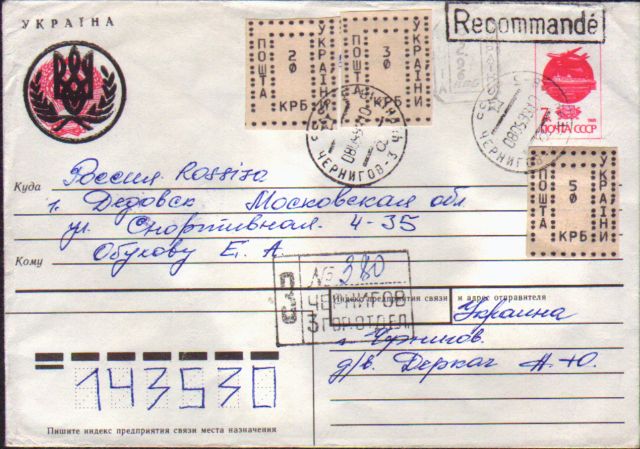 УКРАЇНА
ПОШТА 20 КРБ УКРАЇНИ
ПОШТА 30 КРБ УКРАЇНИ
Recommandé
7к
ПОЧТА СССР
ЧЕРНИГОВ-3
ЧЕРНИГОВ
ПОШТА 50 КРБ УКРАЇНИ
Россия Rossisa
Куда г. Дедовск Московская обл
ул. Спортивная 4-35
Кому Обухову Е. А
З № 280
ЧЕРНИГОВ
3 ГОР.ОТДЕЛ
Индекс предприятия связи и адрес отправителя
Украина
г. Чернигов
д/в. Деркач Н. Ю.
143530
Пишите индекс предприятия связи места назначения